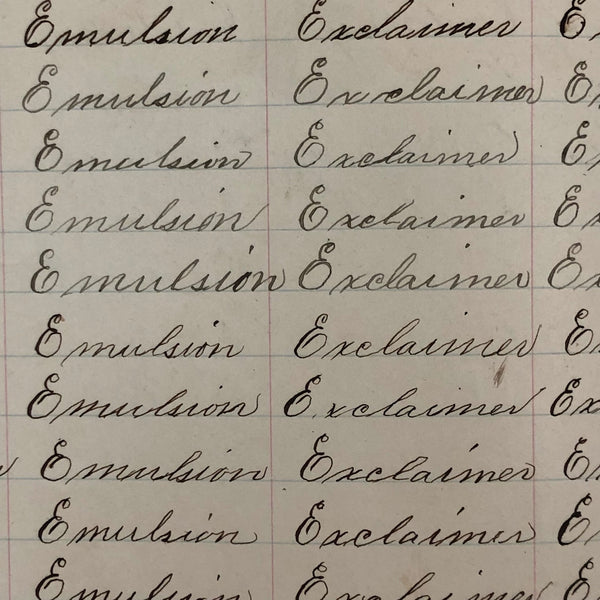 Emulsion Exclaimer E
Emulsion Exxclaimer E
Emulsion Exclaimer E
Emulsion Exclaimer Ex
Emulsion Exclaimer Ex
Emulsion Exclaimer E
Emulsion Exclaimer Ex
Emulsion Exclaimer Ex
Emulsion Exclaimer E
Emulsion Exclaimer E